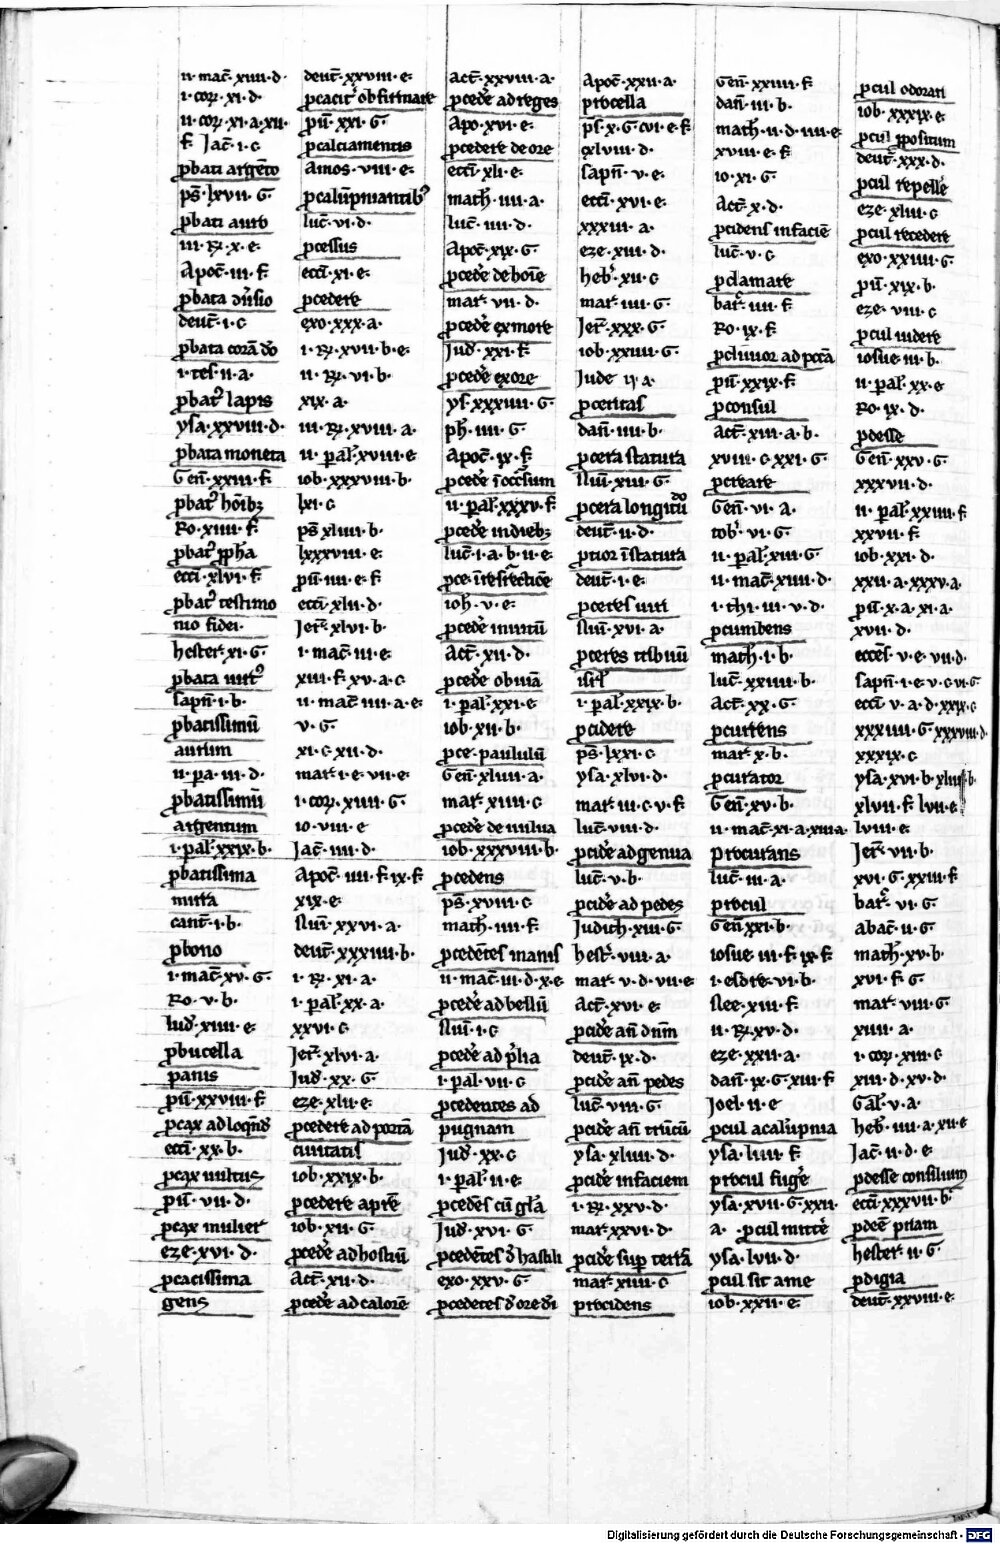 ii· mac̄· xiiii· d·
i· cor̄· xi· d·
ii· cor̄· xi· a· xii·
f· Jac̄· i· c
ꝓbati argēto
ps̄· lxvii· G·
ꝓbati auro
iii· R̄· x· e·
Apoc̄· iii· f·
ꝓbata dn̄sio
deut̄· i· c
ꝓbata corā dō
i· tes̄· ii· a·
ꝓbatꝰ lapis
ysa· xxviii· d·
ꝓbata moneta
Gen̄· xxiii· f·
ꝓbatꝰ hōibꝫ
Ro· xiiii· f·
ꝓbatꝰ ꝓph̄a
ecc̄i· xlvi· f·
ꝓbatꝰ testimo
nio fidei·
hester· xi· G·
ꝓbata uirtꝰ
sapn̄· i· b·
ꝓbatissimū
aurum
ii· pa· iii· d·
ꝓbatissimū
argentum
i· pal̄· xxix· b·
ꝓbatissima
mirra
cant̄· i· b·
ꝓbono
i· mac̄· xv· G·
Ro· v· b·
Iud̄· xiiii· e·
ꝓbucella
panis
pū· xxviii· f·
ꝓcax ad loq̄nd̄
ecc̄i· xx· b·
ꝓcax uultus
pū· vii· d·
ꝓcax mulier
eze· xvi· d·
ꝓcacissima
gens
deut̄· xxviii· e·
ꝓcacit̾ obfirmare
pū· xxi· G·
ꝓcalciamentis
Amos· viii· e·
ꝓcalūpniantibꝰ
luc̄· vi· d·
ꝓcessus
ecc̄i· xi· e·
ꝓcedere
exo· xxx· a·
i· R̄· xvii· b· e·
ii· R̄· vi· b·
xix· a·
iii· R̄· xviii· a·
ii· pal̄· xviii· e
iob· xxxviii· b·
lxi· c
ps̄· xliii· b·
lxxxviii· e·
pū· iiii· e· f·
ecc̄i· xlii· d·
Jer̄· xlvi· b·
i· mac̄· iii· e·
xiii· f· xv· a· c
ii· mac̄· iiii· a· e·
v· G·
xi· c· xii· d·
mar̄· i· e· vii· e·
i· cor̄· xiiii· G·
io· viii· e
Jac̄· iiii· d·
Apoc̄· iiii· f· ix· f·
xix· e·
Nūi· xxvi· a·
deut̄· xxxiiii· b·
i· R̄· xi· a·
i· pal̄· xx· a·
xxvi· c
Jer̄· xlvi· a·
Jud̄· xx· G·
eze· xlii· e·
ꝓcedere ad portā
ciuitatis
iob· xxix· b·
ꝓcedere aprē
iob· xii· G·
ꝓced̄e ad hostiū
Act̄· xii· d·
ꝓced̄e ad calorē
Act̄· xxviii· a·
ꝓced̄e ad reges
Apo· xvi· e·
ꝓcedere de ore
ecc̄i· xli· e·
math̄· iiii· a·
luc̄· iiii· d·
Apoc̄· xix· G·
ꝓced̄e de hoīe
mar̄· vii· d·
ꝓced̄e ex more
Jud̄· xxi· f·
ꝓced̄e ex ore
ys̄· xxxiiii· G·
ph̄· iiii· G·
Apoc̄· ix· f·
ꝓced̄e ī occ̄sum
ii· pal̄· xxxv· f·
ꝓced̄e in diebꝫ
luc̄· i· a· b· ii· e·
ꝓce· ī resr̄ectiōe
ioh̄· v· e·
ꝓced̄e inuitū
Act̄· xii· d·
ꝓced̄e obuiā
i· pal̄· xxi· e
iob· xii· b·
ꝓce· paululū
Gen̄· xliiii· a·
mar̄· xiiii· c
ꝓced̄e de uulua
iob· xxxviii· b·
ꝓcedens
ps̄· xviii· c
math̄· iiii· f·
ꝓcedētes manis
ii· mac̄· iii· d· x· e·
ꝓced̄e ad bellū
Nūi· i· c
ꝓced̄e ad p̄lia
i· pal· vii· c
ꝓcedentes ad
pugnam
Jud̄· xx· c
i· pal̄· ii· e·
ꝓced̄es cū gl̄a
Jud̄· xvi· G·
ꝓcedētes d̄ hastili
exo· xxv· G·
ꝓcedētes d̄ ore d̄i
Apoc̄· xxii· a·
procella
ps̄· x· G· cvi· e· f·
cxlviii· d·
sapn̄· v· e·
ecc̄i· xvi· e·
xxxiii· a·
eze· xiii· d·
heb̄· xii· c
mar̄· iiii· G·
Jer̄· xxx· G·
iob· xxvii· G·
Jude ij· a·
ꝓceritas
dan̄· iiii· b·
ꝓcera statura
Nūi· xiii· G·
ꝓcera longitūdo
deut̄· ii· d·
ꝓcior ī statura
deut̄· i· e·
ꝓceres uiri
Nūi· xvi· a·
ꝓceres tribuū
isrl̄
i· pal̄· xxix· b·
ꝓcidere
ps̄· lxxi· c
ysa· xlvi· d·
mar̄· iii· c· v· f·
luc̄· viii· d·
ꝓcid̄e ad genua
luc̄· v· b·
ꝓcid̄e ad pedes
Judith· xiii· G·
hest̄· viii· a·
mar̄· v· d· vii· e·
Act̄· xvi· e·
ꝓcid̄e an̄ dnm̄
deut̄· ix· d·
ꝓcid̄e an̄ pedes
luc̄· viii· G·
ꝓcid̄e an̄ trūcū
ysa· xliiii· d·
ꝓcid̄e in faciem
i· R̄· xxv· d·
mar̄· xxvi· d·
ꝓcid̄e sup̄ terrā
mar̄· xiiii· c
procidens
Gen̄· xxiiii· f·
dan̄· iii· b·
math̄· ii· d· iiii· e·
xviii· e· f·
io· xi· G·
Act̄· x· d·
ꝓcidens in faciē
luc̄· v· c
ꝓclamare
bar̄· iiii· f·
Ro· ix· f·
ꝓcliuior ad pccā
pū· xxix· f·
ꝓconsul
Act̄· xiii· a· b·
xviii· c· xxi· G·
ꝓcreare
Gen̄· vi· a·
tob̄· vi· G·
ii· pal̄· xiii· G·
ii· mac̄· xiiii· d·
i· thi· iii· v· d·
ꝓcumbens
math̄· i· b·
luc̄· xxiiii· b·
Act̄· xx· G·
ꝓcurrens
mar̄· x· b·
ꝓcurator
Gen̄· xv· b·
ii· mac̄· xi· a· xiii· a·
Procurans
luc̄· iii· a·
procul
Gen̄· xxi· b·
iosue· iii· f· ix· f·
i· esdre· vi· b·
Nee· xiii· f·
ii· R̄· xv· d·
eze· xxii· a·
dan̄· ix· G· xiii· f·
Joel· ii· e·
ꝓcul a calūpnia
ysa· liiii· f·
procul fug̾e
ysa· xvii· G· xxii·
a· ꝓcul mitt̾e
ysa· lvii· d·
ꝓcul sit a me
iob· xxii· e·
ꝓcul odorari
iob· xxxix· e·
ꝓcul ꝓpositum
deut̄· xxx· d·
ꝓcul repell̾e
eze· xliii· c
ꝓcul recedere
exo· xxxiii· G·
pū· xix· b·
eze· viii· c
ꝓcul uidere
iosue· iii· b·
ii· pal̄· xx· e·
Ro· ix· d·
ꝓdesse
Gen̄· xxv· G·
xxxvii· d·
ii· pal̄· xxiiii· f·
xxvii· f·
iob· xxi· d·
xxii· a· xxxv· a·
pū· x· a· xi· a·
xvii· d·
ecces̄· v· e· vii· d·
sapn̄· i· e· v· c· vi· G
ecc̄i· v· a· d· xxix· c
xxxiiii· G· xxxviii· d·
xxxix· c
ysa· xvi· b· xliiii· b·
xlvii· f· lvii· e·
lviii· e·
Jer̄· vii· b·
xvi· G· xxiii· f·
bar̄· vi· G·
abac̄· ii· G·
math̄· xv· b·
xvi· f· G·
mar̄· viii· G·
xiiii· a·
i· cor̄· xiii· c
xiiii· d· xv· d·
Gal̄· v· a·
heb̄· iiii· a· xii· e
Jac̄· ii· d· e·
ꝓdesse consilium
ecc̄i· xxxvii· b·
ꝓdeē p̄riam
hester· ii· G·
ꝓdigia
deut̄· xxviii· e·
Digitalisierung gefördert durch die Deutsche Forschungsgemeinschaft - DFG